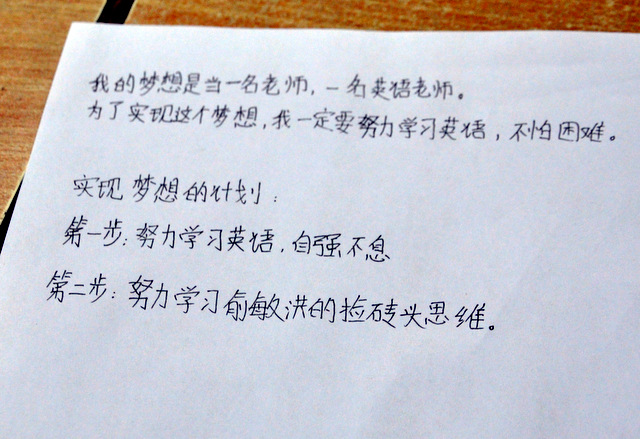 我的梦想是当一名老师，一名英语老师。
为了实现这个梦想，我一定要努力学习英语，不怕困难。
实现梦想的计划：
第一步：努力学习英语，自强不息
第二步：努力学习俞敏洪的捡砖头思维。